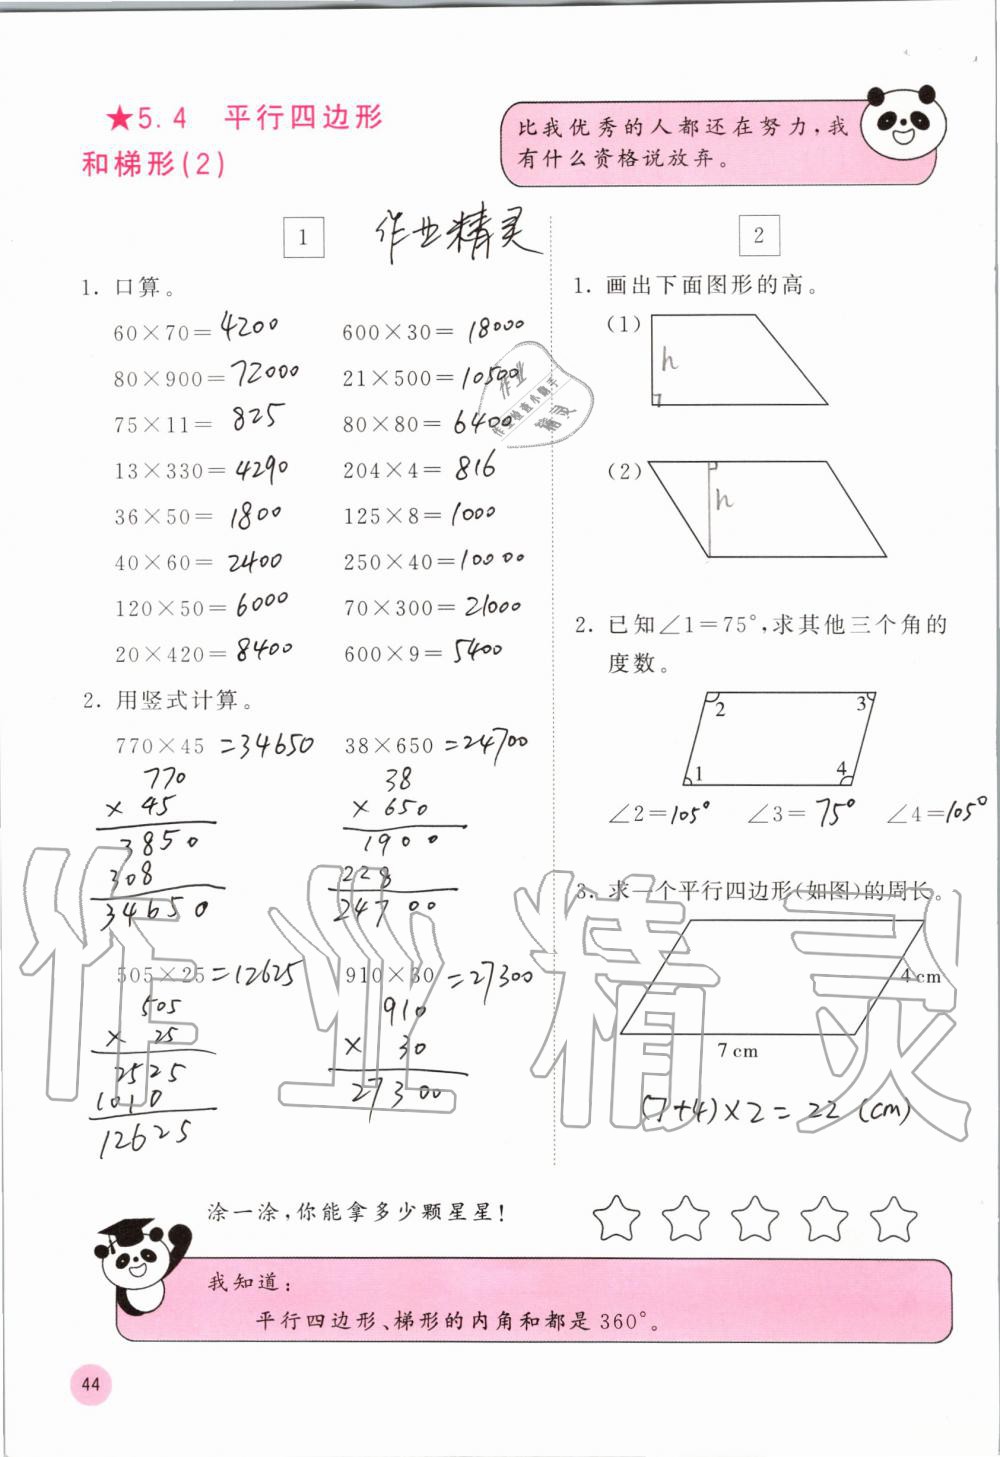 ★5.4 平行四边形
和梯形(2)
比我优秀的人都还在努力,我
有什么资格说放弃。
1
作业精灵
1. 口算。
60×70=4200 600×30=18000
80×900=72000 21×500=10500
75×11=825 80×80=6400
13×330=4290 204×4=816
36×50=1800 125×8=1000
40×60=2400 250×40=10000
120×50=6000 70×300=21000
20×420=8400 600×9=5400
2. 用竖式计算。
770×45=34650 38×650=24700
770 38
×45 ×650
3850 1900
308 228
34650 24700
505×25=12625 910×30=27300
505 910
×25 ×30
2525 27300
1010
12625
2
1. 画出下面图形的高。
(1)
h
(2)
h
2. 已知∠1=75°,求其他三个角的
度数。
2 3
1 4
∠2=105° ∠3=75° ∠4=105°
3. 求一个平行四边形(如图)的周长。
4 cm
7 cm
(7+4)×2=22 (cm)
作业
精灵
作业精灵
涂一涂,你能拿多少颗星星!
我知道:
平行四边形、梯形的内角和都是360°。
44